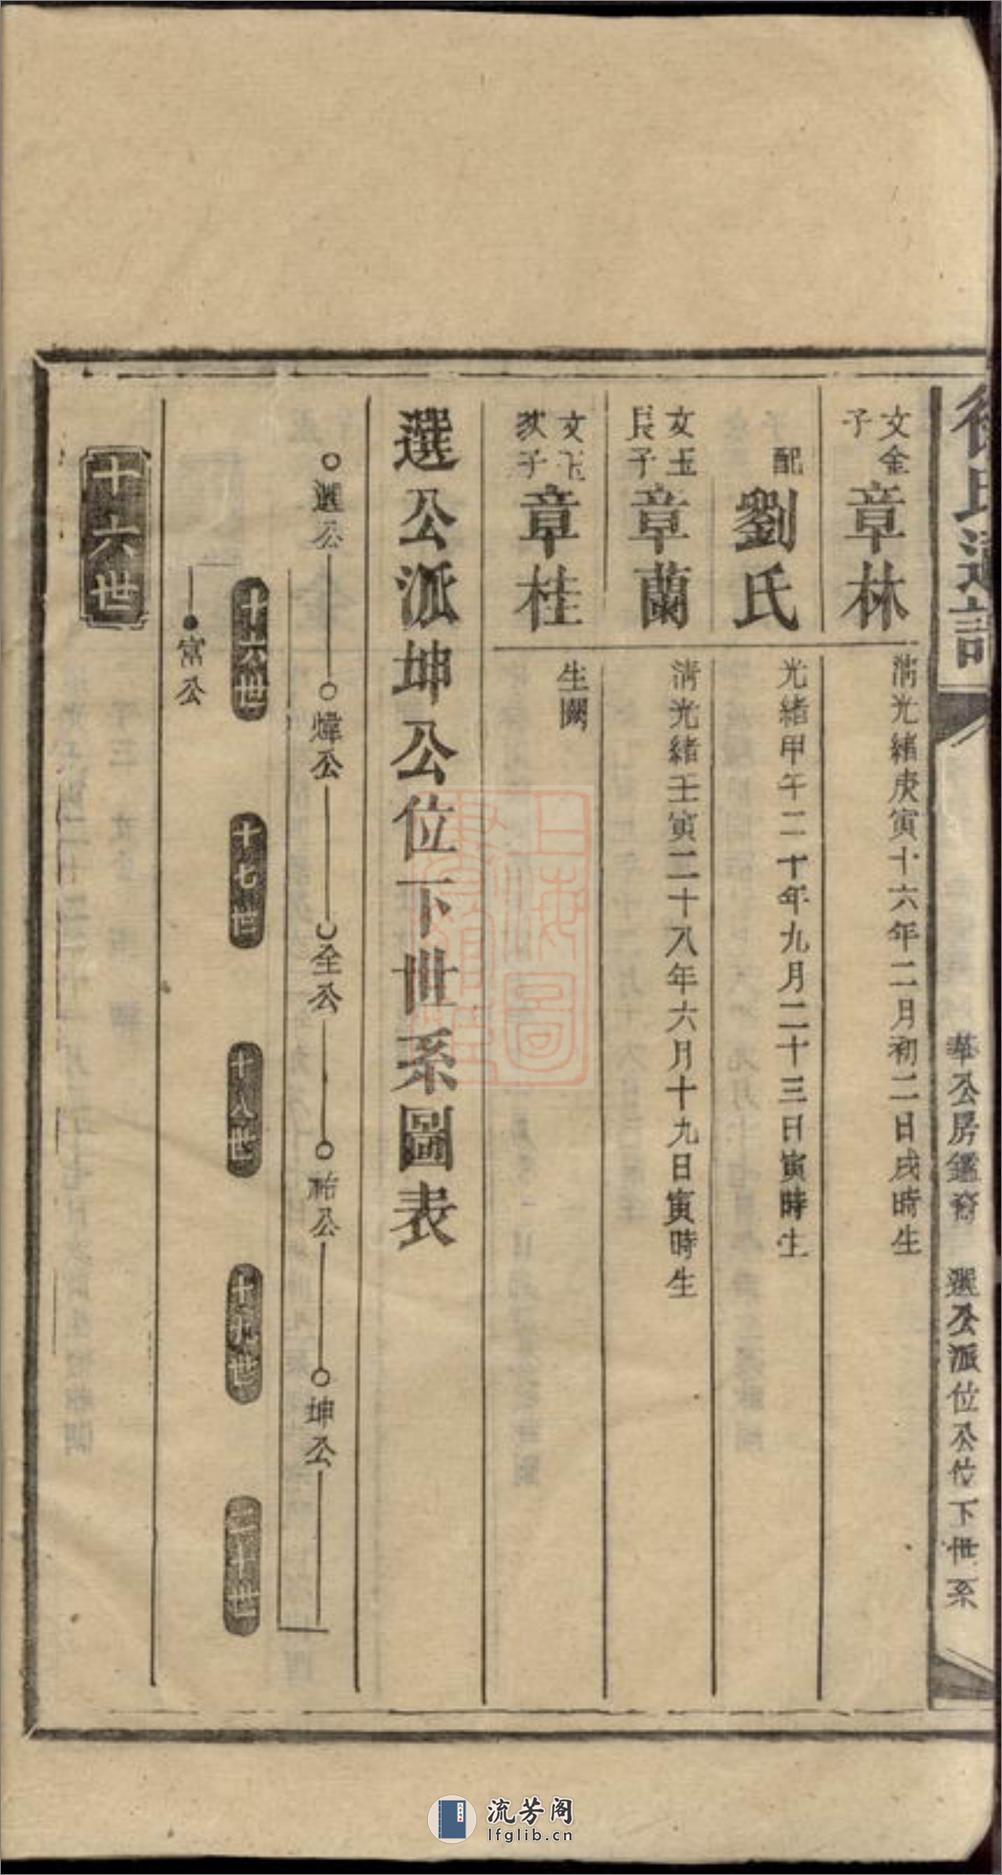 徐氏造誌
華公房鑑裔 選公派位公位下世系
文金子 章林 清光緒庚寅十六年二月初二日戌時生
配 劉氏 光緒甲午二十年九月二十三日寅時生
文玉長子 章蘭 清光緒壬寅二十八年六月十九日寅時生
文玉次子 章桂 生闕
選公派坤公位下世系圖表
選公 煒公 全公 祐公 坤公
十六世 十七世 十八世 十九世 二十世
常公
十六世
上海圖書館藏
流芳阁
lfglib.cn